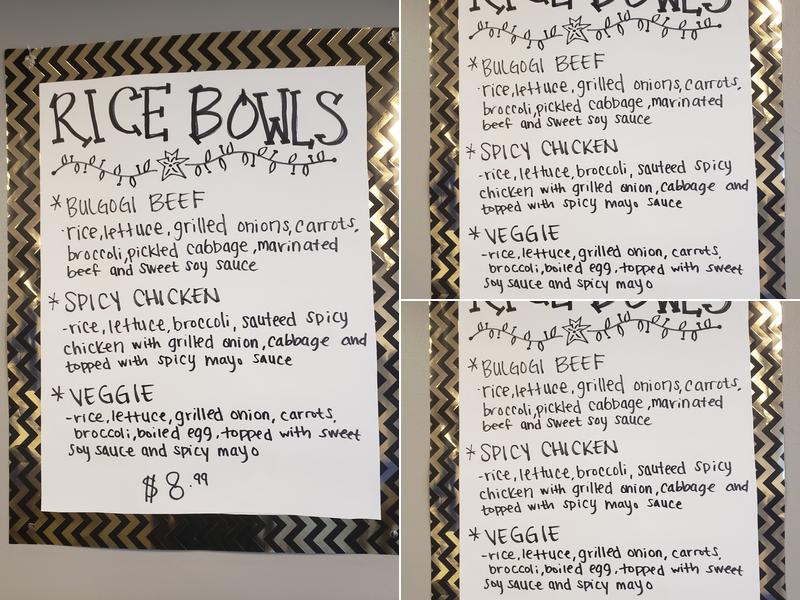 RICE BOWLS
* BULGOGI BEEF
-rice, lettuce, grilled onions, carrots,
broccoli, pickled cabbage, marinated
beef and sweet soy sauce
* SPICY CHICKEN
-rice, lettuce, broccoli, sauteed spicy
chicken with grilled onion, cabbage and
topped with spicy mayo sauce
* VEGGIE
-rice, lettuce, grilled onion, carrots,
broccoli, boiled egg, topped with sweet
soy sauce and spicy mayo
$8.99
RICE BOWLS
* BULGOGI BEEF
-rice, lettuce, grilled onions, carrots,
broccoli, pickled cabbage, marinated
beef and sweet soy sauce
* SPICY CHICKEN
-rice, lettuce, broccoli, sauteed spicy
chicken with grilled onion, cabbage and
topped with spicy mayo sauce
* VEGGIE
-rice, lettuce, grilled onion, carrots,
broccoli, boiled egg, topped with sweet
soy sauce and spicy mayo
RICE BOWLS
* BULGOGI BEEF
-rice, lettuce, grilled onions, carrots,
broccoli, pickled cabbage, marinated
beef and sweet soy sauce
* SPICY CHICKEN
-rice, lettuce, broccoli, sauteed spicy
chicken with grilled onion, cabbage and
topped with spicy mayo sauce
* VEGGIE
-rice, lettuce, grilled onion, carrots,
broccoli, boiled egg, topped with sweet
soy sauce and spicy mayo